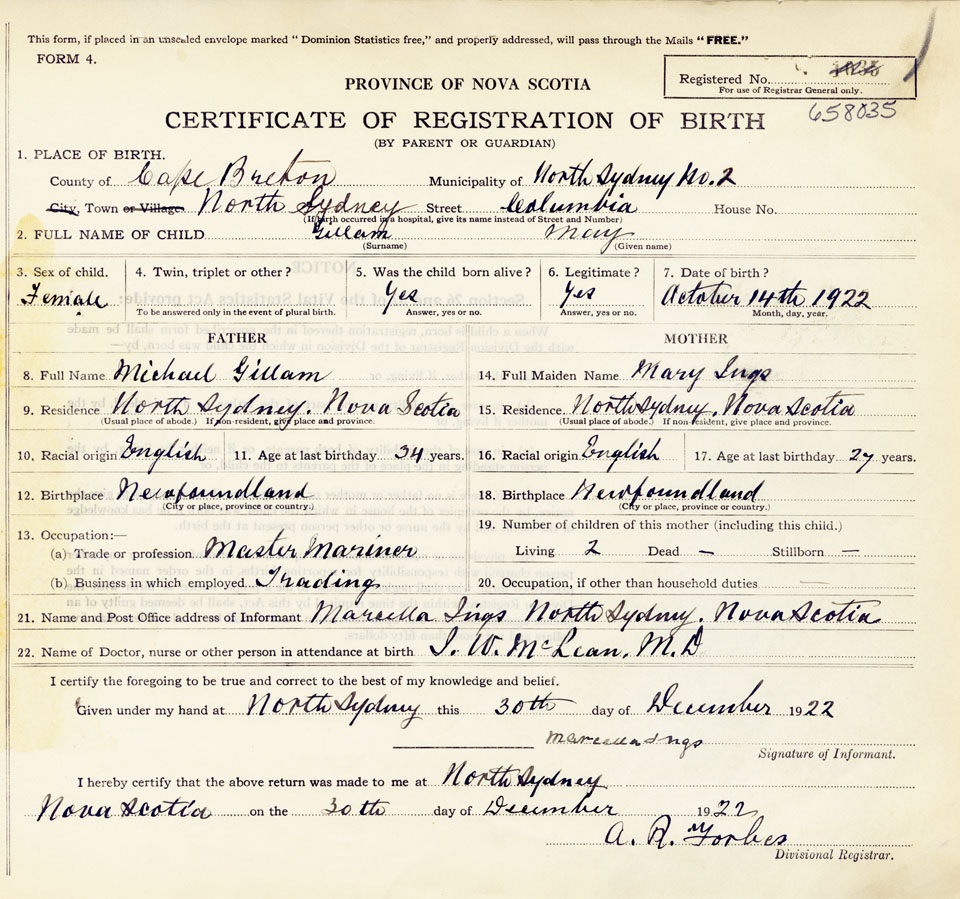 This form, if placed in an unsealed envelope marked "Dominion Statistics free," and properly addressed, will pass through the Mails "FREE."
FORM 4.
PROVINCE OF NOVA SCOTIA
Registered No.
For use of Registrar General only.
658035
CERTIFICATE OF REGISTRATION OF BIRTH
(BY PARENT OR GUARDIAN)
1. PLACE OF BIRTH.
County of Cape Breton Municipality of North Sydney No. 2
City, Town or Village North Sydney Street Columbia House No.
(If birth occurred in a hospital, give its name instead of Street and Number)
2. FULL NAME OF CHILD Gillam May
(Surname) (Given name)
3. Sex of child. 4. Twin, triplet or other? 5. Was the child born alive? 6. Legitimate? 7. Date of birth?
Female Yes Yes October 14th 1922
To be answered only in the event of plural birth. Answer, yes or no. Answer, yes or no. Month, day, year.
FATHER MOTHER
8. Full Name Michael Gillam 14. Full Maiden Name Mary Ings
9. Residence North Sydney. Nova Scotia 15. Residence North Sydney. Nova Scotia
(Usual place of abode.) If non-resident, give place and province. (Usual place of abode.) If non-resident, give place and province.
10. Racial origin English 11. Age at last birthday 34 years. 16. Racial origin English 17. Age at last birthday 27 years.
12. Birthplace Newfoundland 18. Birthplace Newfoundland
(City or place, province or country.) (City or place, province or country.)
13. Occupation:— 19. Number of children of this mother (including this child.)
(a) Trade or profession Master Mariner Living 2 Dead — Stillborn —
(b) Business in which employed Trading 20. Occupation, if other than household duties —
21. Name and Post Office address of Informant Marcella Ings North Sydney. Nova Scotia
22. Name of Doctor, nurse or other person in attendance at birth J. W. McLean. M.D
I certify the foregoing to be true and correct to the best of my knowledge and belief.
Given under my hand at North Sydney this 30th day of December 1922
Marcella Ings
Signature of Informant.
I hereby certify that the above return was made to me at North Sydney
Nova Scotia on the 30th day of December 1922
A. R. Forbes
Divisional Registrar.